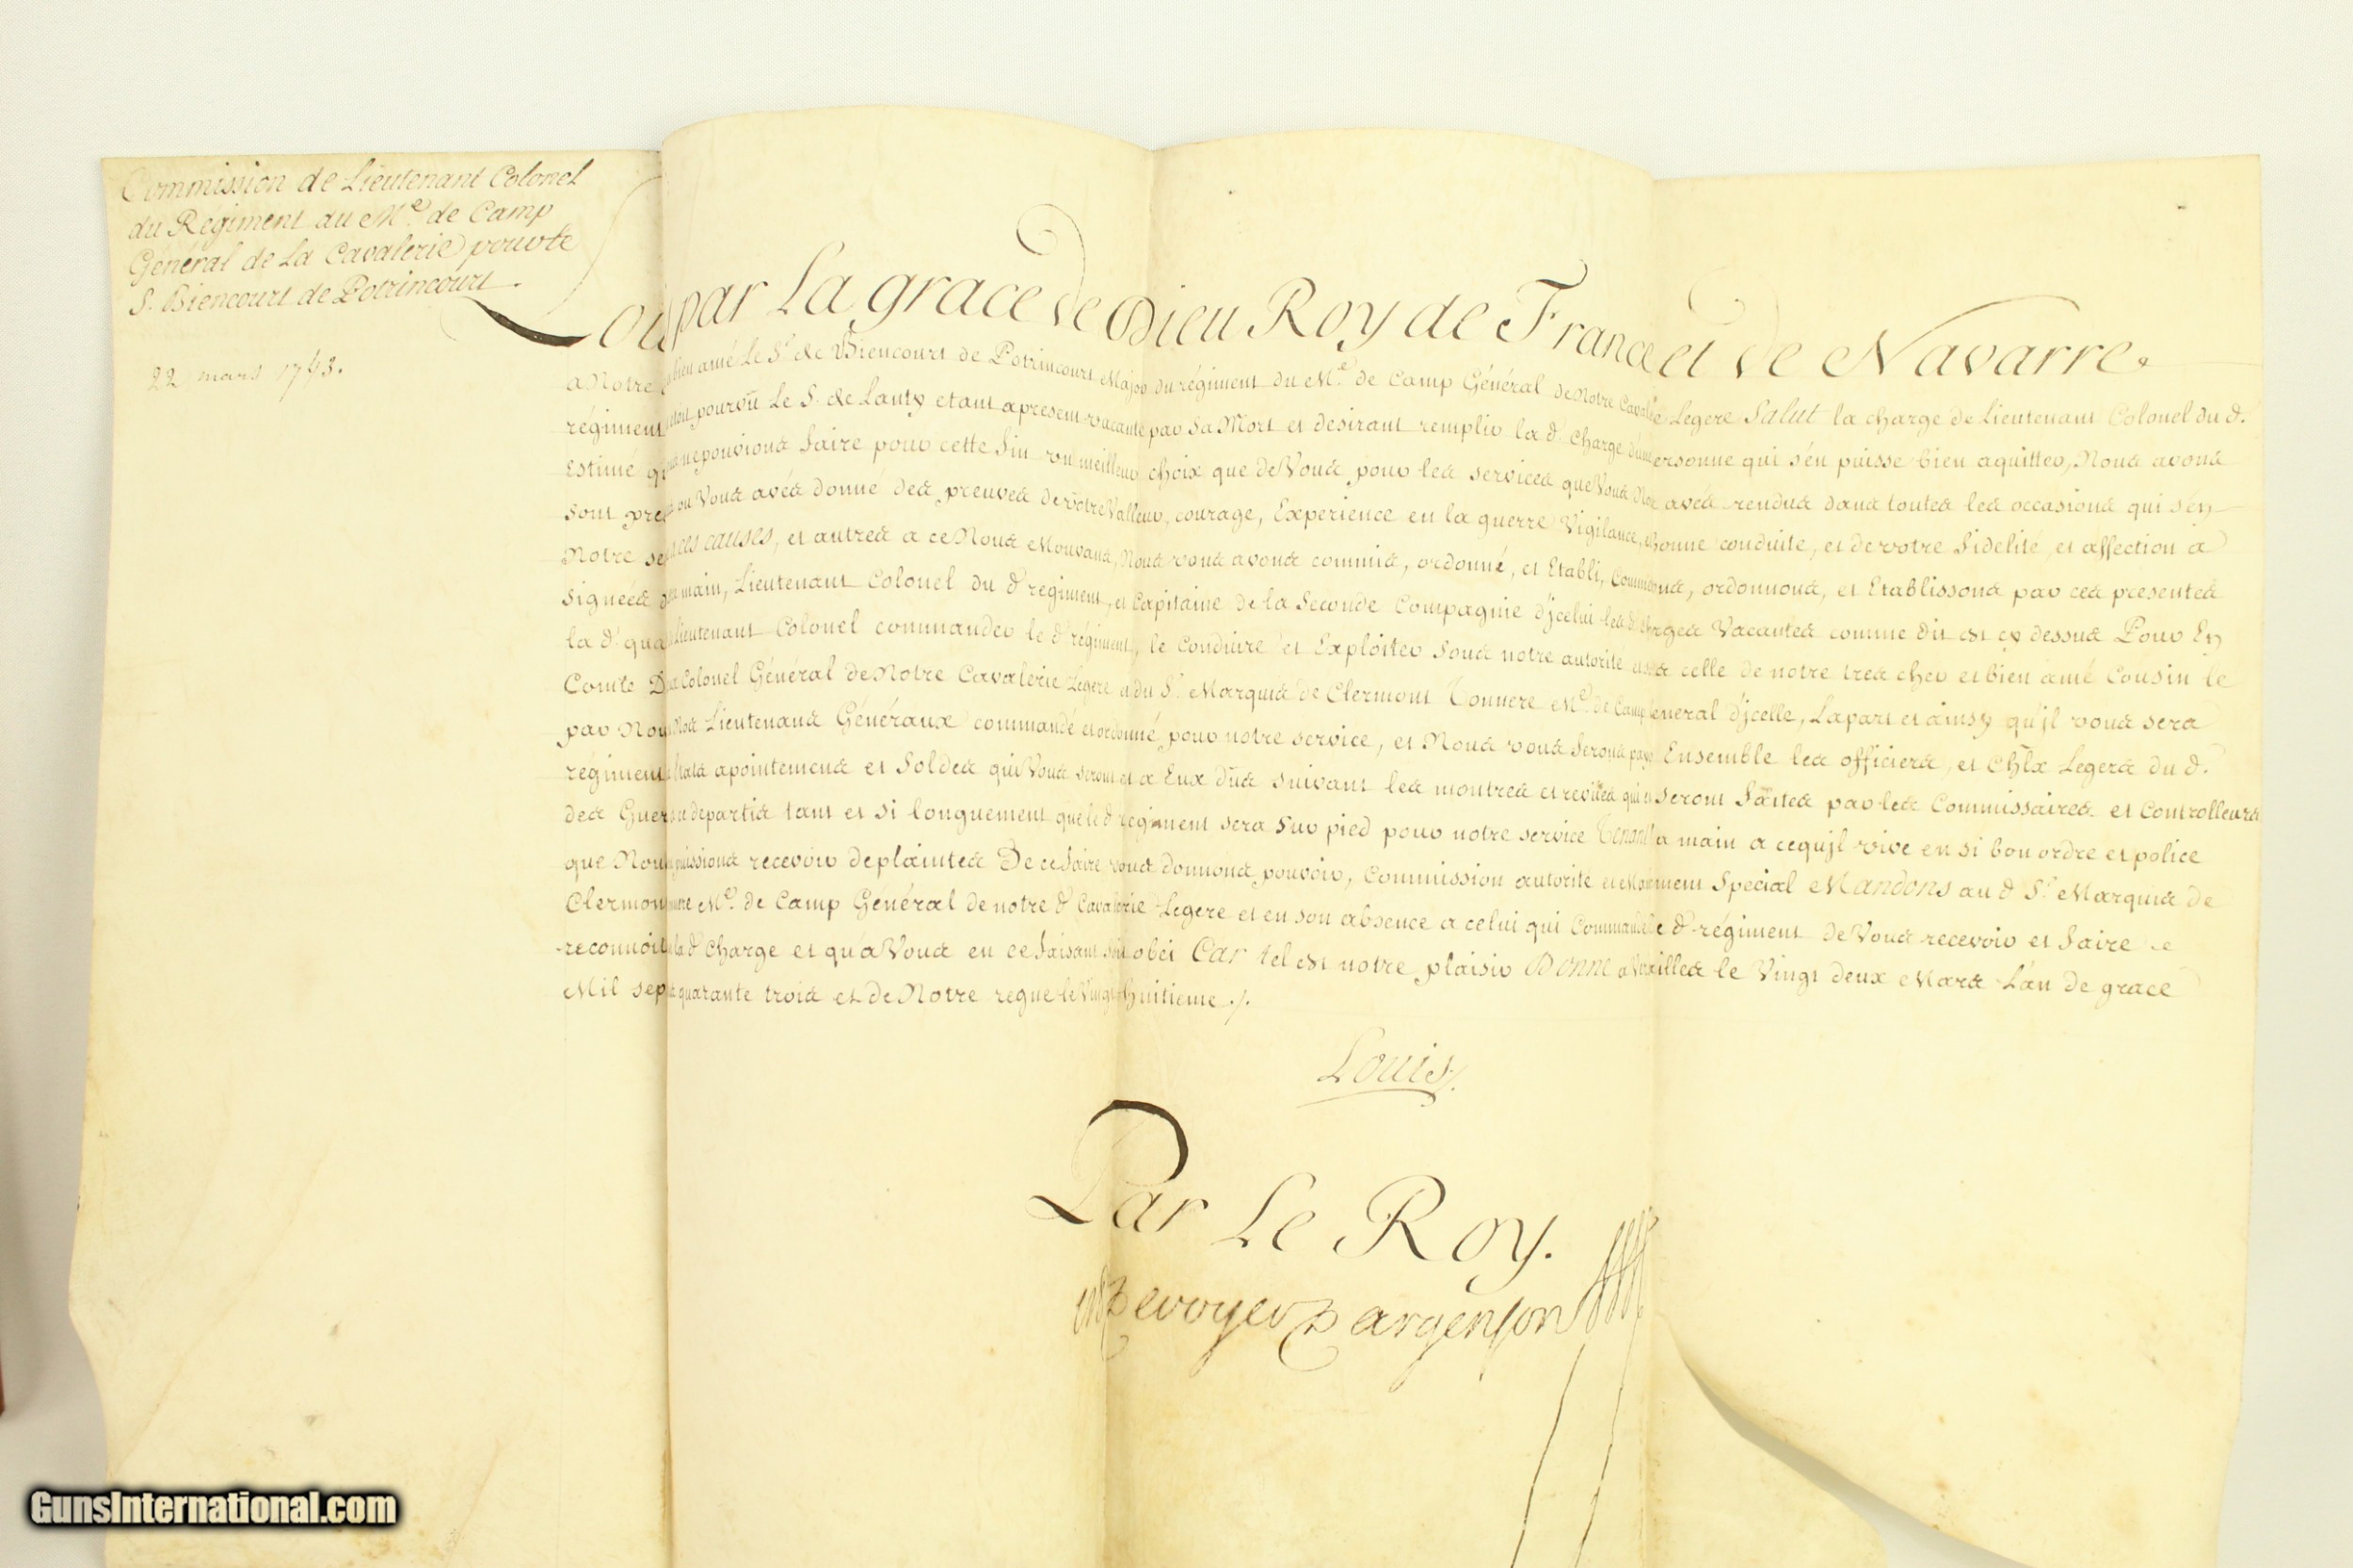 Commission de Lieutenant Colonel
du Régiment du Me. de Camp
Général de La Cavalerie pour le
S. Biencourt de Potrincourt.
22 mars 1743.
Louis par La grace de Dieu Roy de France et de Navarre.
a Notre bien amé Le Sr. de Biencourt de Potrincourt Major du régiment du Me. de Camp Général de Notre Cavalerie Legere Salut la charge de Lieutenant Colonel du d.
régiment pourvû Le S. de Lanty etant apresent vacante par Sa Mort et desirant remplir la d. Charge d'une personne qui s'en puisse bien aquitter, Nous avons
Estimé ne pouvions faire pour cette fin un meilleur choix que de Vous pour les services que Vous Nous avés rendus dans toutes les occasions qui s'en
sont ou Vous avés donné des preuves de votre Valleur, courage, Experience en la guerre Vigilance, bonne conduite, et de votre fidelité, et affection a
Notre ces causes, et autres a ce Nous Mouvans, Nous vous avons commis, ordonné, et Etabli, Commettons, ordonnons, et Etablissons par ces presentes
signées main, Lieutenant Colonel du d. regiment, et Capitaine de la Seconde Compagnie d'jcelui les d. charges Vacantes comme dit est cy dessus Pour En
la d. Lieutenant Colonel commander le d. régiment, le Conduire et Exploiter Sous notre autorité et sous celle de notre tres cher et bien amé Cousin le
Comte Colonel Général de Notre Cavalerie Légere et du Sr. Marquis de Clermont Tonnere Me. de Camp General d'jcelle, La part et ainsy qu'jl vous sera
par Nous Nos Lieutenans Généraux commandé et ordonné pour notre service, et Nous vous ferons payer Ensemble les officiers, et Chlx Legers du d.
régiment apointemens et Soldes qui Vous seront et a Eux dûs suivant les montres et reveües qui en seront faites par les Commissaires et Controlleurs
des Guerres departis tant et si longuement que le d. regiment sera sur pied pour notre service Tenant la main a cequ'jl vive en si bon ordre et police
que Nous puissions recevoir de plaintes De ce faire vous donnons pouvoir, Commission autorité et Mandement Special Mandons au d. Sr. Marquis de
Clermont Me. de Camp Général de notre d. Cavalerie Legere et en son absence a celui qui Commande le d. régiment de Vous recevoir et faire
reconnoitre la d. Charge et qu'a Vous en ce faisant soit obei Car tel est notre plaisir Donné a Versailles le Vingt deux Mars L'an de grace
Mil sept quarante trois et de Notre regne le Vingt huitieme ./.
Louis
Par Le Roy.
De voyer D argenson
GunsInternational.com